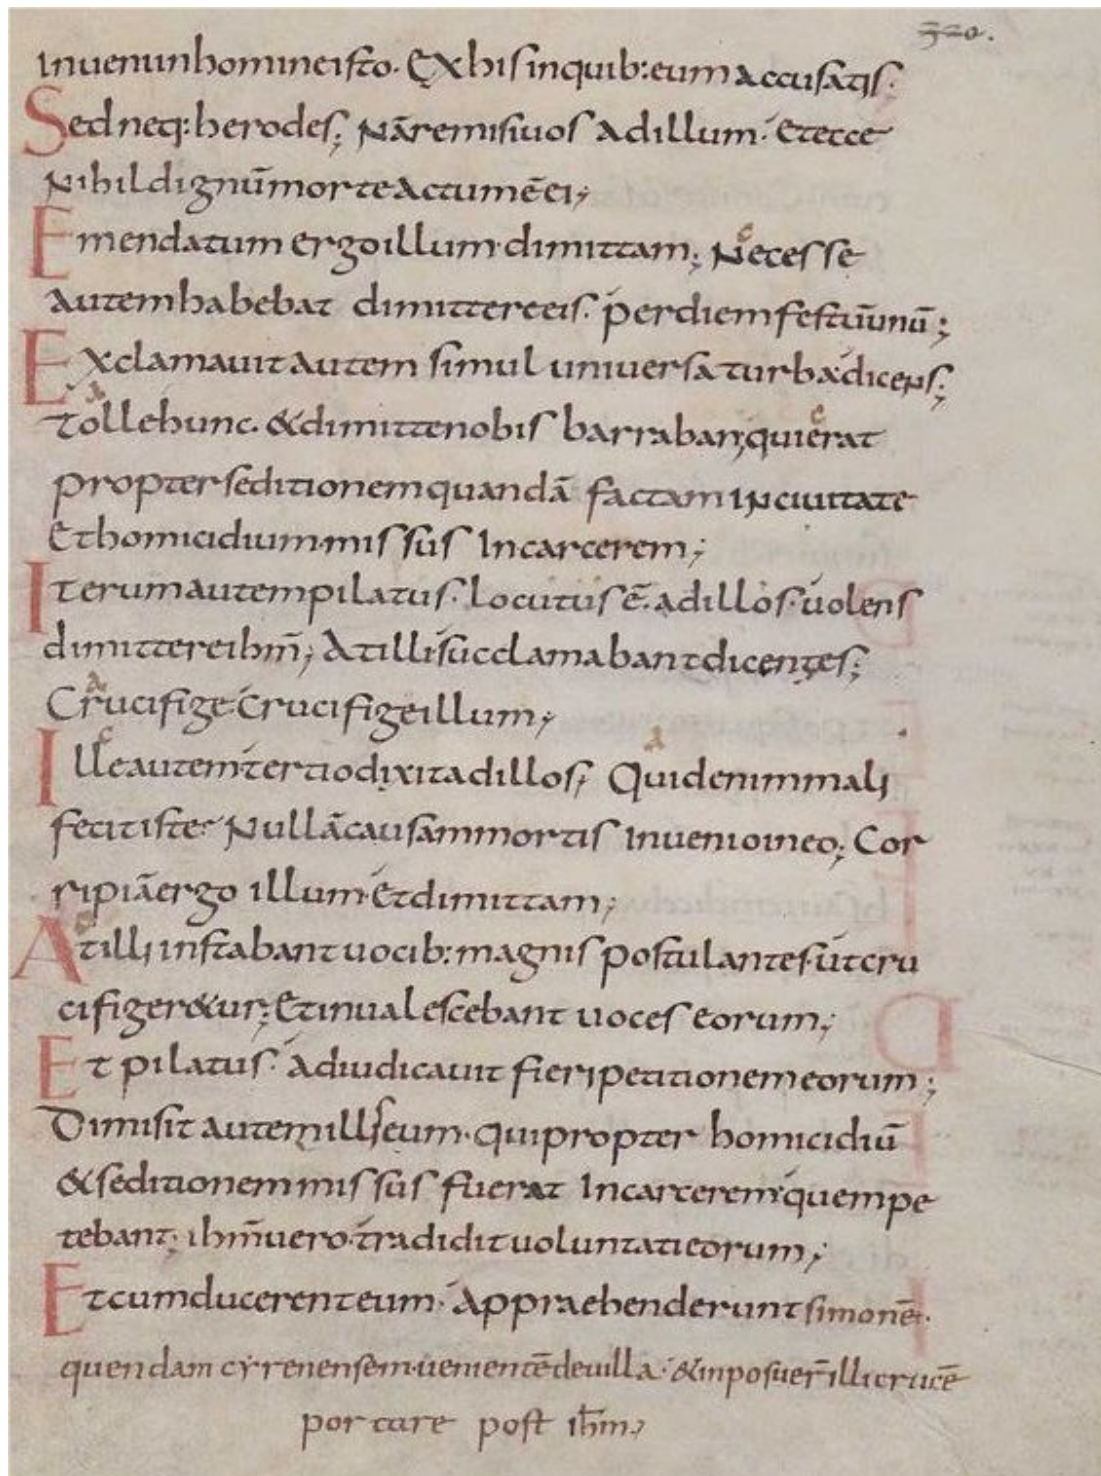 320.
Inuenunhomineisto. Exhisinquib:eumaccusatis.
Sedneq:herodes; Nāremisiuos adillum. Etecce
Nihildignūmorteactumēei;
Emendatum ergoillum.dimittam; Necesse
autemhabebat dimittereeis. perdiemfestūunū;
Exclamauitautem simul uniuersaturba.dicens;
tollehunc. &dimittenobis barraban;quierat
propterseditionemquandā factam inciuitate
Ethomicidium.missus Incarcerem;
Iterumautempilatus. locutusē. adillos.uolens
dimittereihm̄; Atillisucclamabantdicentes;
Crucifige.Crucifigeillum;
Illeautem.tertiodixitadillos; Quidenimmali
fecitiste. Nullācausammortis Inuenioineo; Cor
ripiāergo illum.Etdimittam;
Atilliinstabantuocib:magnis postulantes.utcru
cifiger&ur; Etinualescebant uoces eorum;
Et pilatus. adiudicauit fieripetitionemeorum;
Dimisit autemilliseum.quipropter homicidiū
&seditionemmissus fuerat Incarcerem.quempe
tebant; ihm̄uero.tradidituoluntatieorum;
Etcumducerenteum. Appraehenderuntsimonē.
quendam cẏrenensem.uenientēdeuilla. &inposuer̄illicrucē
portare post ihm̄;